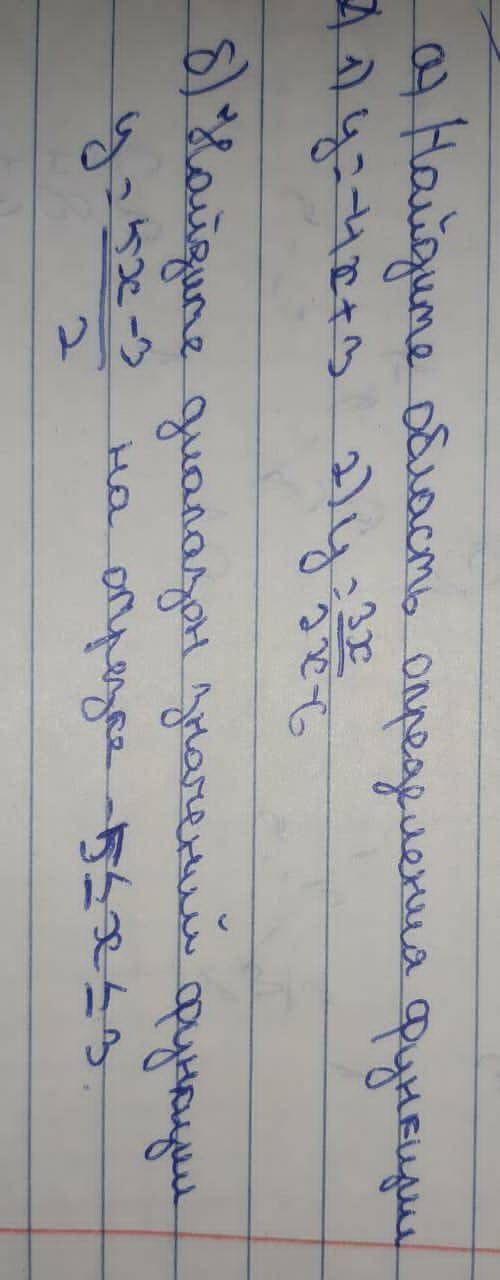 а) Найдите область определения функции
1) y = -4x + 3 2) y = 3x / 2x - 6
б) Найдите диапазон значений функции
y = 5x - 3 / 2 на отрезке -5 ≤ x ≤ 3.